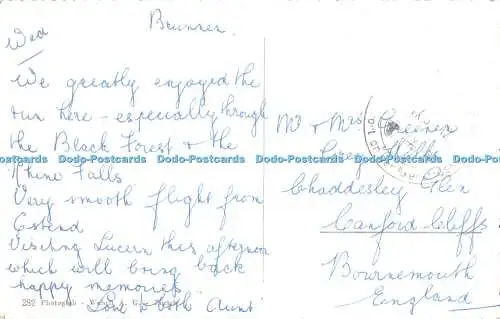 Brunnen.
Wed
We greatly enjoyed the
run here - especially through
the Black Forest & the
Rhine Falls
Very smooth flight from
Ostend
Visiting Lucern this afternoon
which will bring back
happy memories
Love to both Aunt
Mr & Mrs Greener
Chaddesley Glen
Canford Cliffs
Bournemouth
England
282 Photoglob
Dodo-Postcards Dodo-Postcards Dodo-Postcards Dodo-Postcards